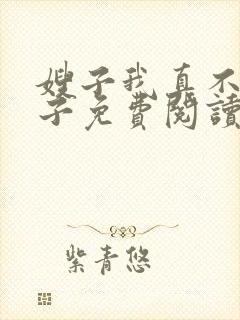 嫂子我真不
子免費閱讀
紫青悠